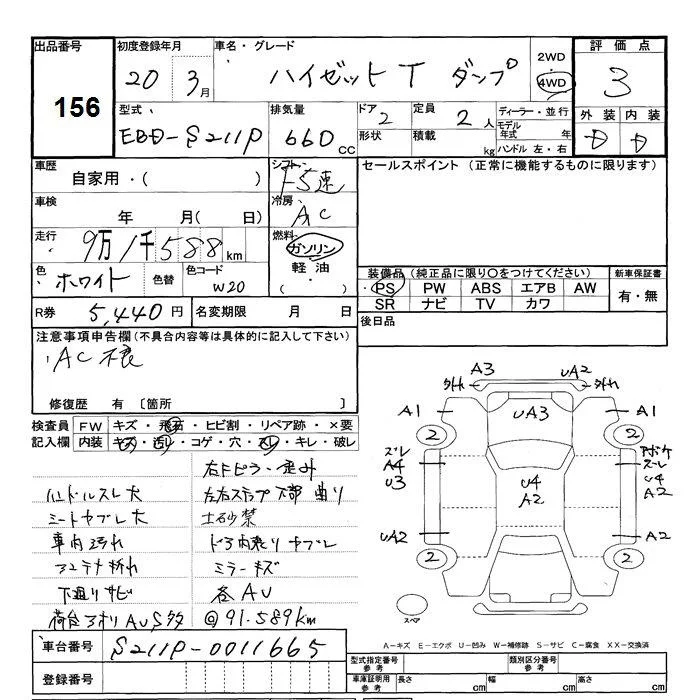 出品番号
156
初度登録年月
20 3月
車名・グレード
ハイゼットT ダンプ
2WD
4WD
評価点
3
型式
EBD-S211P
排気量
660cc
ドア
2
形状
定員
2人
積載
kg
ディーラー・並行
モデル年式 年
ハンドル 左・右
外装 内装
D D
車歴
自家用・( )
シフト
F5速
セールスポイント (正常に機能するものに限ります)
車検
年 月( 日)
冷房
AC
走行
9万1千588km
燃料
ガソリン
軽油
( )
色
ホワイト
色替
色コード
W20
装備品(純正品に限り○をつけてください)
PS PW ABS エアB AW
SR ナビ TV カワ
新車保証書
有・無
R券 5,440円
名変期限 月 日
後日品
注意事項申告欄(不具合内容等は具体的に記入して下さい)
AC不良
修復歴 有 〔箇所 〕
検査員記入欄
FW キズ・飛石・ヒビ割・リペア跡・×要
内装 キズ・汚レ・コゲ・穴・スレ・キレ・破レ
右Fピラー歪み
ハンドルスレ大
左右ステップ下部曲り
シートヤブレ大
土砂禁
車内汚れ
ドア内張りヤブレ
アンテナ折れ
ミラーキズ
下廻りサビ
各AU
荷台アオリAUS多
@91.589km
A3 UA2
外れ 外れ
A1 UA3 A1
2 2
ズレ
A4
U3
U4
A2
ズレ
U4
A2
UA2 A2
2 2
スペア
A-キズ E-エクボ U-凹み W-補修跡 S-サビ C-腐食 XX-交換済
車台番号
S211P-0011665
登録番号
型式指定番号 参考
類別区分番号 参考
車庫証明用 参考
長さ cm 幅 cm 高さ cm